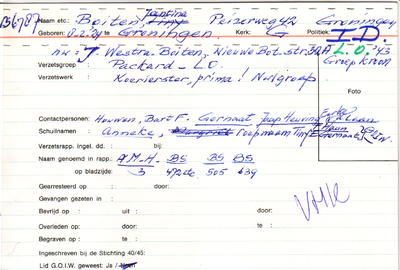 B6787
Naam etc.: Boiten, Jantina Peizerweg 42 Groningen
Geboren: 18.2.24 te Groningen. Kerk: G Politiek: I.D.
n.w.: J. Westra-Boiten, Nieuwe Bot.str. 32A L.O. '43
Verzetsgroep: Packard - L.O. Groep Kroon
Verzetswerk: Koerierster, prima!
Foto
Contactpersonen: Houwen, Bart F. - Gernaat, Jaap Heuving
Schuilnamen: Anneke, roepnaam Tiny
Verzetsrapp. ingel. dd.: bij:
Naam genoemd in rapp. A.M.H. BS BS BS
op bladzijde: 3 505 639
Gearresteerd op: door:
Gevangen gezeten in:
Bevrijd op: uit: door:
Overleden op: door: te:
Begraven op: te:
Ingeschreven bij de Stichting 40/45:
Lid G.O.I.W. geweest: Ja / Neen